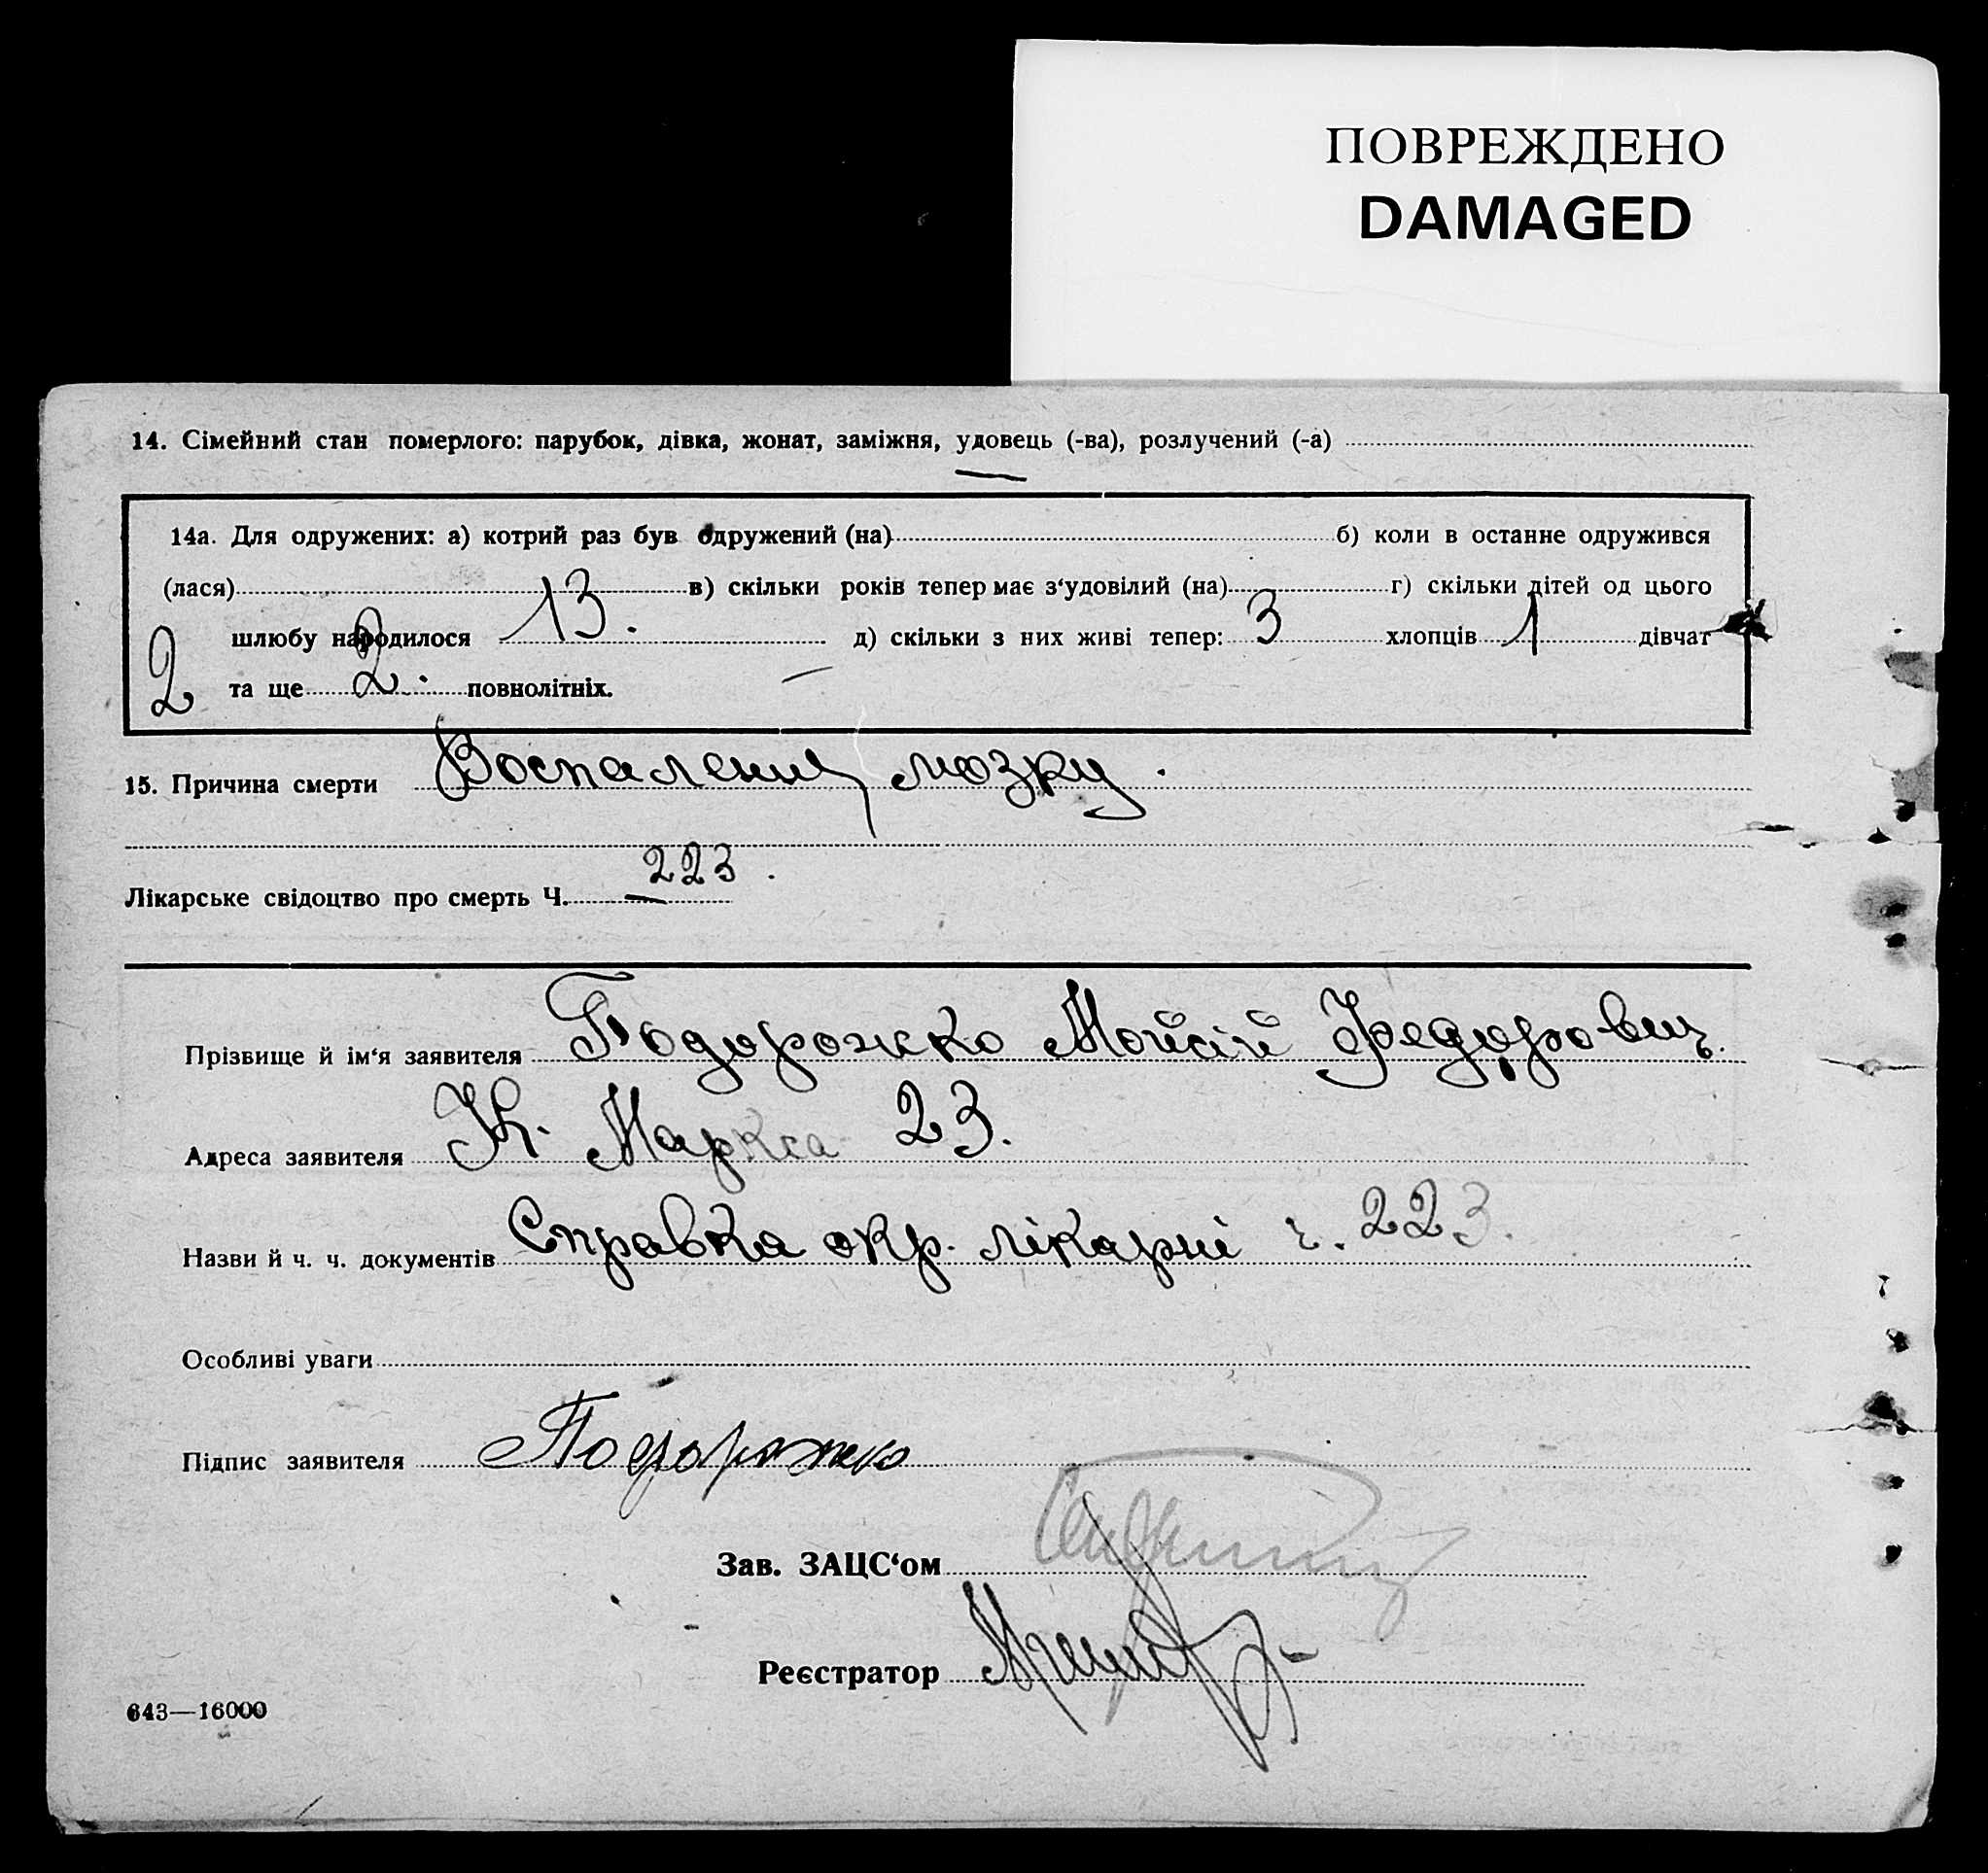 ПОВРЕЖДЕНО
DAMAGED
14. Сімейний стан померлого: парубок, дівка, жонат, заміжня, удовець (-ва), розлучений (-а)
14а. Для одружених: а) котрий раз був одружений (на) б) коли в останне одружився
(лася) в) скільки років тепер має з‘удовілий (на) г) скільки дітей од цього
шлюбу народилося 13. д) скільки з них живі тепер: 3 хлопців 1 дівчат
2 та ще 2. повнолітніх.
15. Причина смерти Воспалениу мозку.
223.
Лікарське свідоцтво про смерть Ч.
Прізвище й ім‘я заявителя Подорожко Мойсій Федорович.
Адреса заявителя К. Маркса 23.
Назви й ч. ч. документів Справка окр. лікарні ч. 223.
Особливі уваги
Підпис заявителя Подорожко
Зав. ЗАЦС‘ом
Реєстратор
643—16000